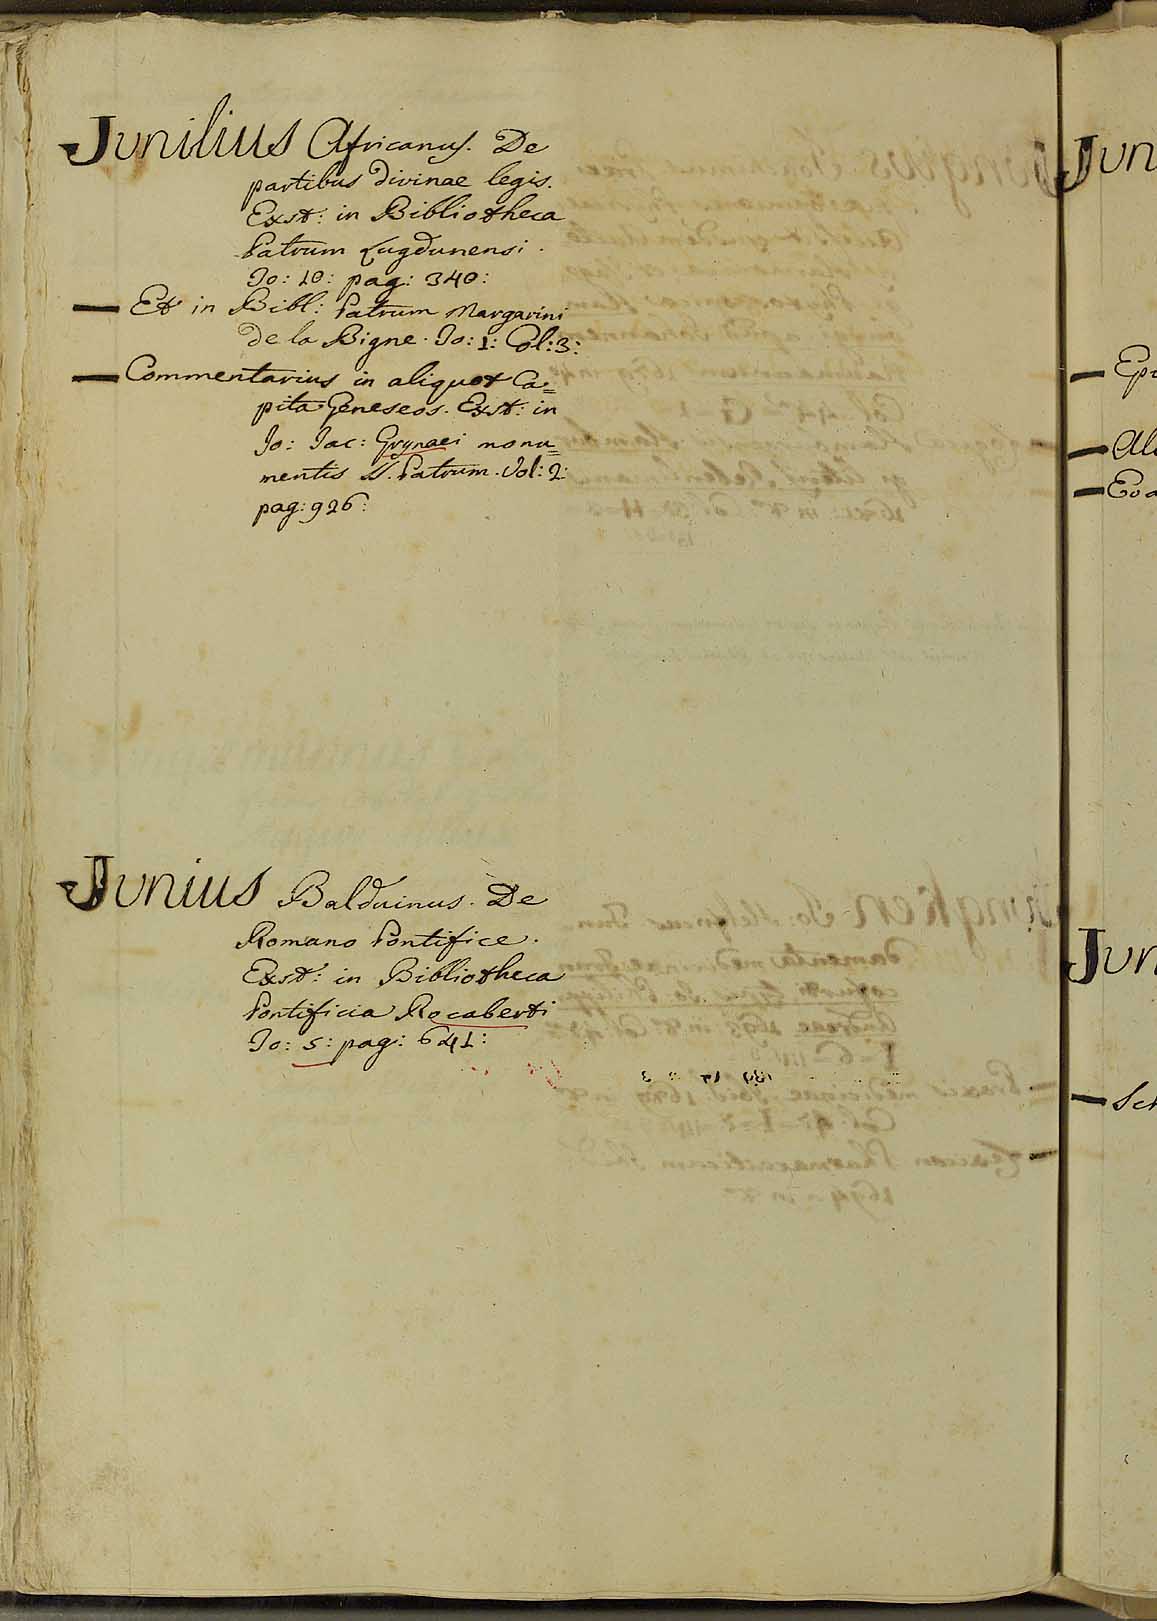 Junilius Africanus. De
partibus divinae legis.
Exst: in Bibliotheca
Patrum Lugdunensi.
To: 10: pag: 340:
— Et in Bibl: Patrum Margarini
de la Bigne. To: 1: Col: 3:
— Commentarius in aliquot Ca=
pita Geneseos. Exst: in
Jo: Jac: Grynaei monu=
mentis SS. Patrum. Vol: 2:
pag: 926:
Junius Balduinus. De
Romano Pontifice.
Exst: in Bibliotheca
Pontificia Rocaberti
To: 5: pag: 641:
Jun
— Ep
— Al
— Eva
Jun
— Sch